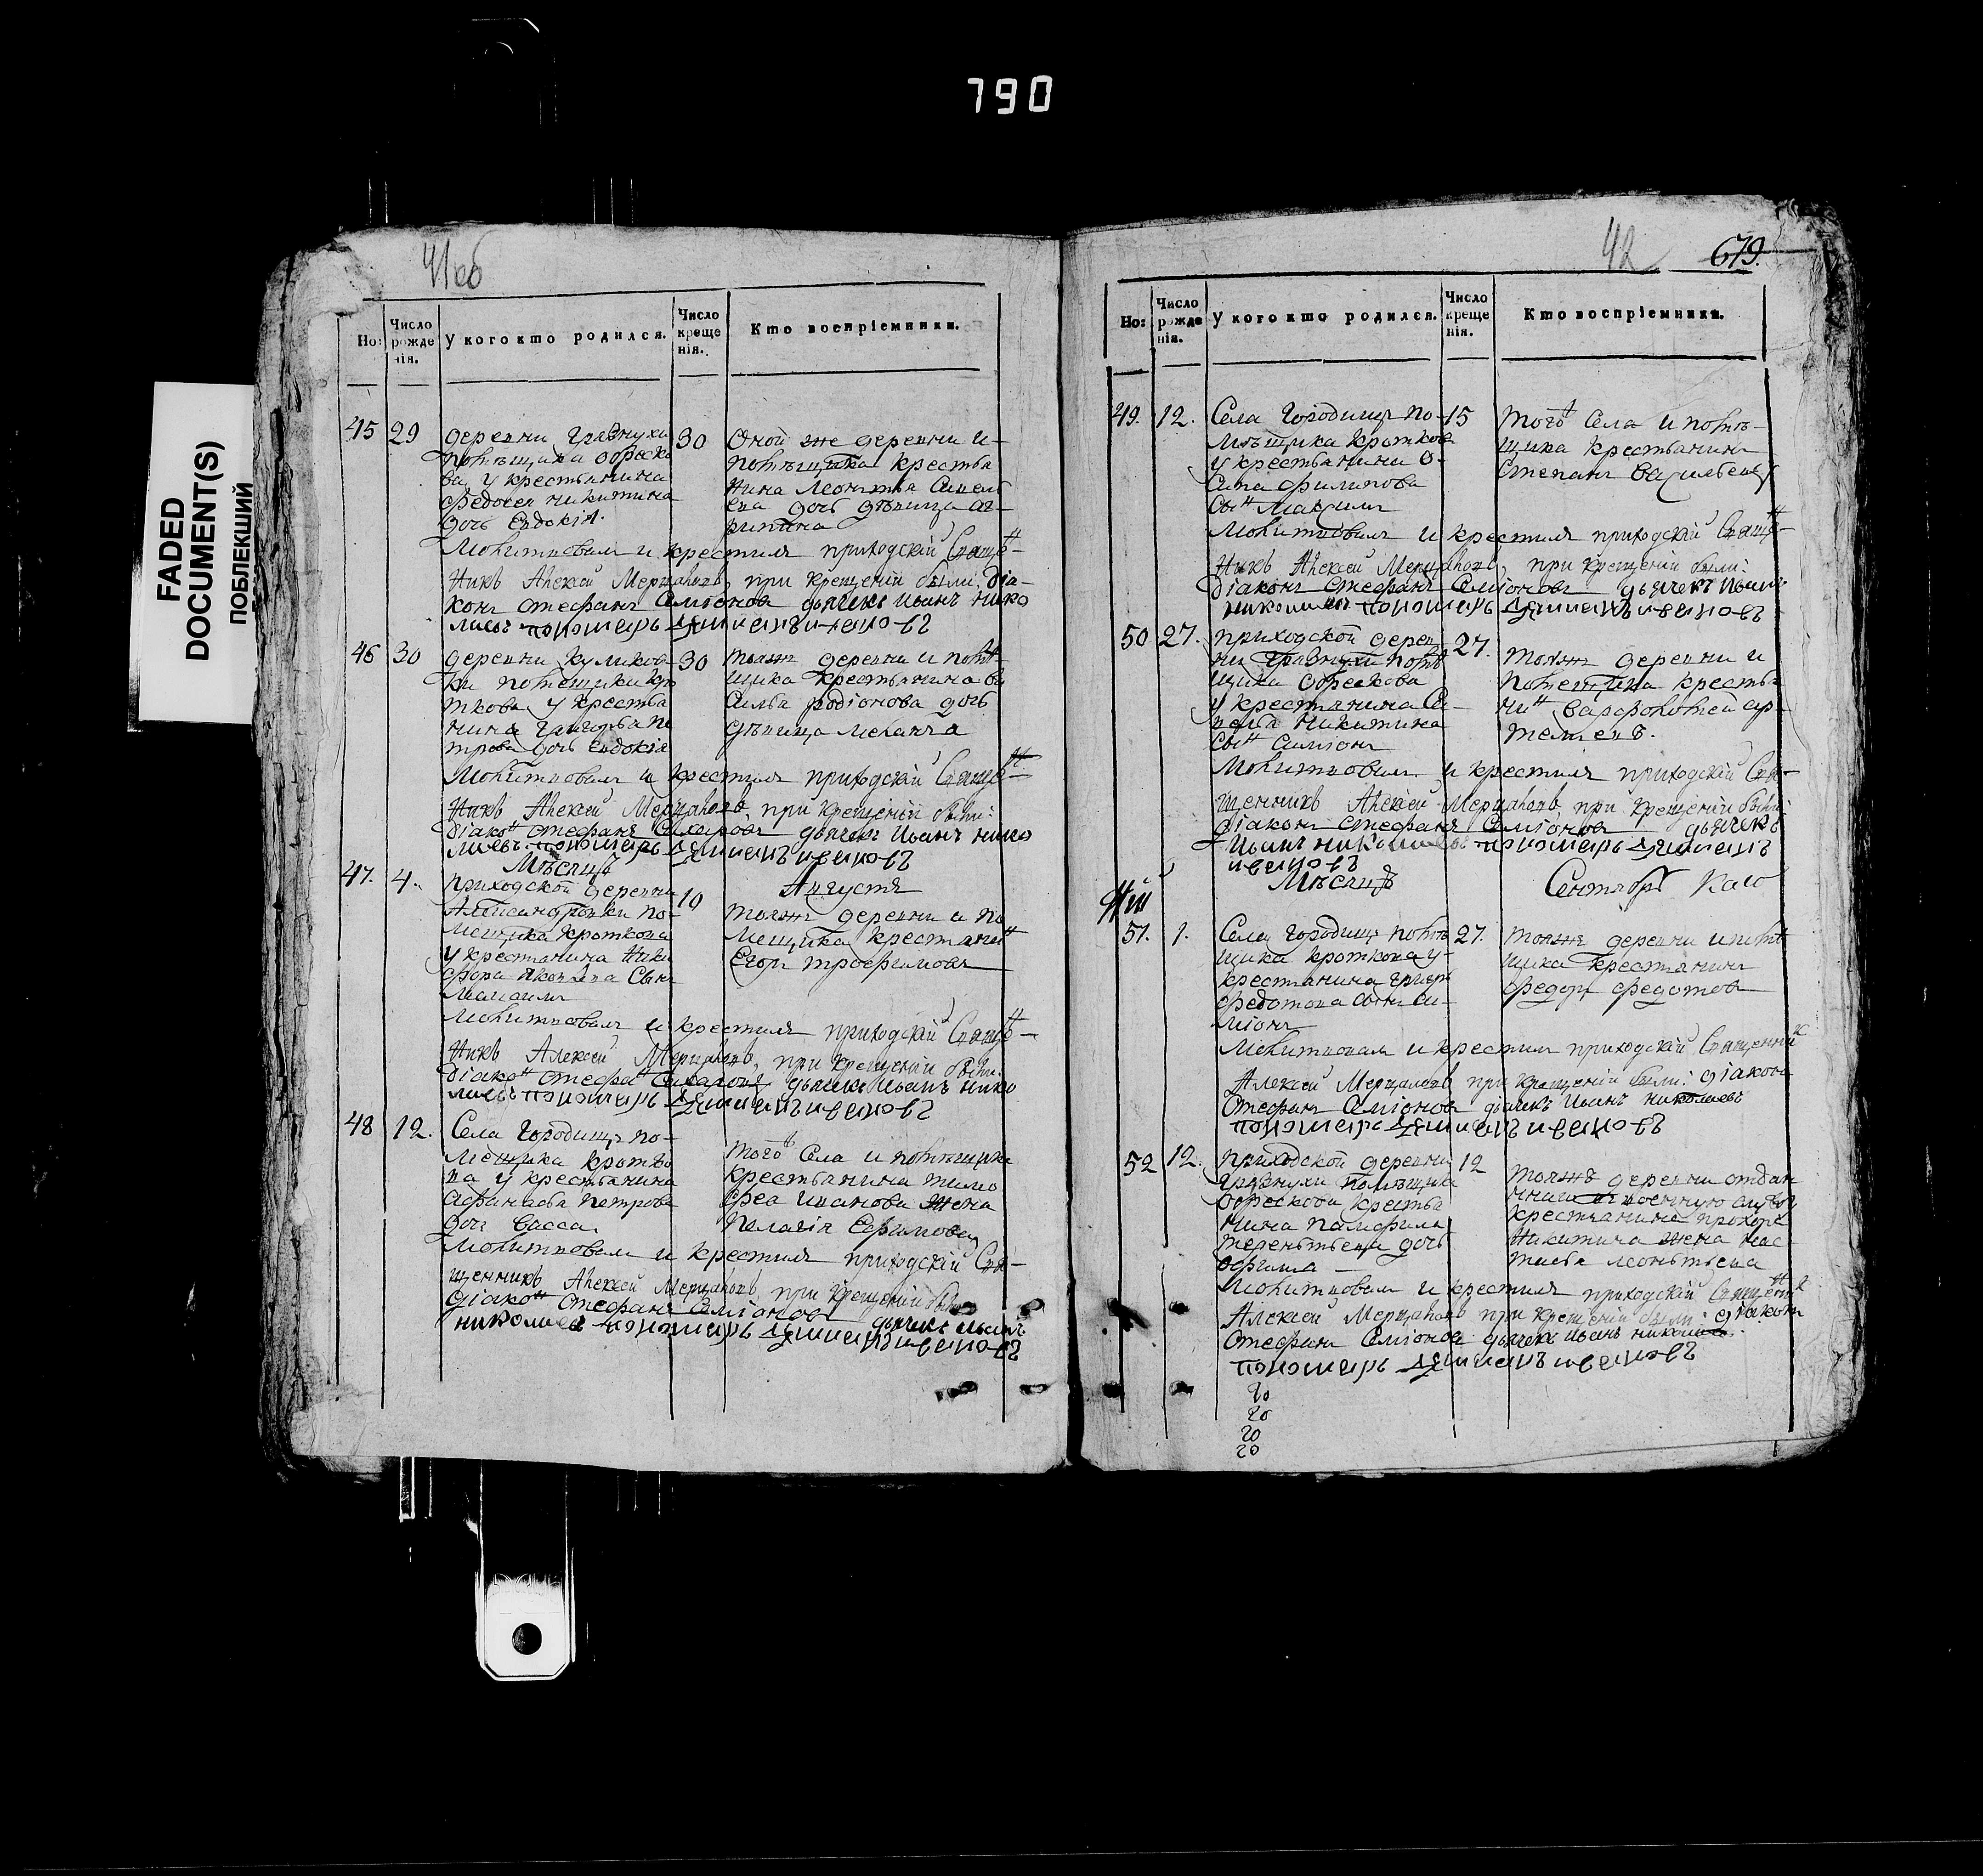 790
FADED
DOCUMENT(S)
ПОБЛЕКШИЙ
41об
Но:
Число рожденія.
У кого кто родился.
Число крещенія.
Кто воспріемники.
45 29
деревни Грязнухи
помѣщика Обреско
ва у крестьянина
Федосея Никитина
дочь Евдокія.
30
Оной же деревни и
помѣщика крестья
нина Леонтья Савель
ева дочь дѣвица аг
рипина
Молитвовалъ и крестилъ приходскій Свяще
нникъ Алексѣй Мерцаловъ, при крещеніи были: діа-
конъ Стефанъ Симіоновъ дьячекъ Иванъ Нико
лаевъ пономарь
46 30
деревни Куликов
ки помещика Кро
ткова у крестья
нина Григорья Пе
трова дочь Евдокія
30
тояж деревни и помѣ
щика крестьянина Ва
силья Родіонова дочь
дѣвица Меланья
Молитвовалъ и крестилъ приходскій Свяще
нникъ Алексѣй Мерцаловъ, при крещеніи были:
діаконъ Стефанъ дьячекъ Иванъ Нико
лаевъ пономарь
Мѣсяцъ Августъ
47. 4.
приходской деревни
Александровки по-
мещика Кроткова
у крестянина Ники
фора Яковлева Сынъ
10
тояж деревни и по
мещика крестянинъ
Егоръ Трофимовъ
Молитвовалъ и крестилъ приходскій Свяще
нникъ Алексей Мерцаловъ, при крещеніи были:
діаконъ Стефанъ дьячекъ Иванъ Нико
лаевъ пономарь
48 12.
Села Городищъ по-
мещика Кротко
ва у крестьянина
Афанасья Петрова
дочь Васса
того Села и помѣщика
крестьянина Тимо
фея Иванова жена
Пелагія Ефимова
Молитвовалъ и крестилъ приходскій Свя-
щенникъ Алексѣй Мерцаловъ, при крещеніи были
діаконъ Стефанъ Симіоновъ дьячекъ Иванъ
Николаевъ пономарь
42 679.
Но:
Число рожденія.
У кого кто родился.
Число крещенія.
Кто воспріемники.
49. 12.
Села Городищъ по-
мѣщика Кроткова
у крестьянина О-
сипа Филипова
Сынъ
15
того Села и помѣ-
щика крестьянинъ
Степанъ Васильевъ
Молитвовалъ и крестилъ приходскій Свяще
нникъ Алексѣй Мерцаловъ, при крещеніи были:
діаконъ Стефанъ Симіоновъ дьячекъ Иванъ
Николаевъ пономарь
50 27.
приходской дерев
ни Грязнухи помѣ
щика Обрескова
у крестянина Са-
велья Никитина
Сынъ Симіонъ
27.
тояж деревни и
помещика крестья
нинъ Варфоломей Ар-
темьевъ.
Молитвовалъ и крестилъ приходскій Свя-
щенникъ Алексѣй Мерцаловъ, при крещеніи были:
діаконъ Стефанъ Симіоновъ дьячекъ
Иванъ Николаевъ пономарь
Мѣсяцъ Сентябрь
51. 1.
Села Городищъ помѣ
щика Кроткова у
крестянина Григорья
Федотова сынъ Си-
міонъ
27.
тояж деревни и помѣ
щика крестянинъ
Федоръ Федотовъ
Молитвовалъ и крестилъ приходскій Священникъ
Алексей Мерцаловъ при крещеніи были: діаконъ
Стефанъ Симіоновъ дьячекъ Иванъ Николаевъ
пономарь
52 12.
приходской деревни
Грязнухи помѣщика
Обрескова крестья
нина Памфила
Терентьева дочь
12
тояже деревни отдан
наго в военную службу
крестьянина Прохора
Никитина жена Нас
тасья Леонтьева
Молитвовалъ и крестилъ приходскій Священникъ
Алексей Мерцаловъ при крещеніи были: діаконъ
Стефанъ Симіоновъ дьячекъ Иванъ Николаевъ
пономарь